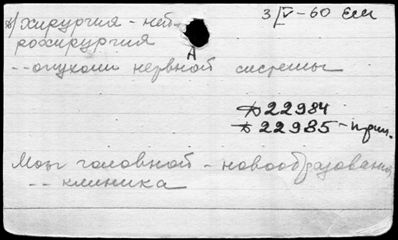 а) хирургия - ней- 3/V-60 Ели
рохирургия
А
-- опухоли нервной системы
Д 22984
Д 22985 - прил.
Мозг головной - новообразования
-- клиника